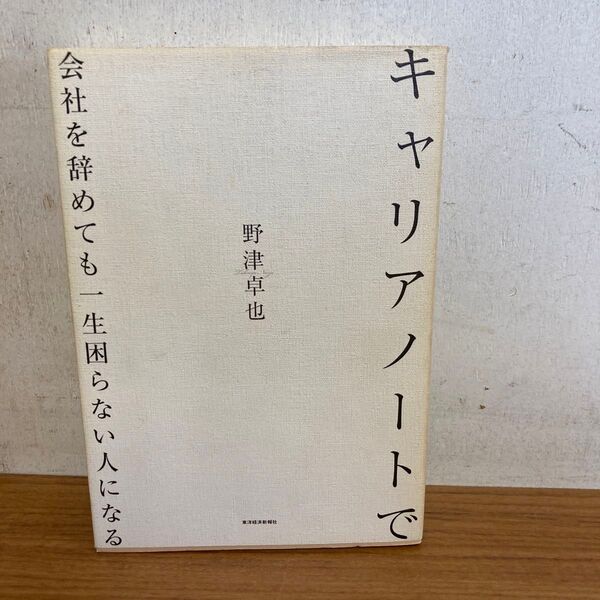 キャリアノートで
会社を辞めても一生困らない人になる
野津卓也
東洋経済新報社